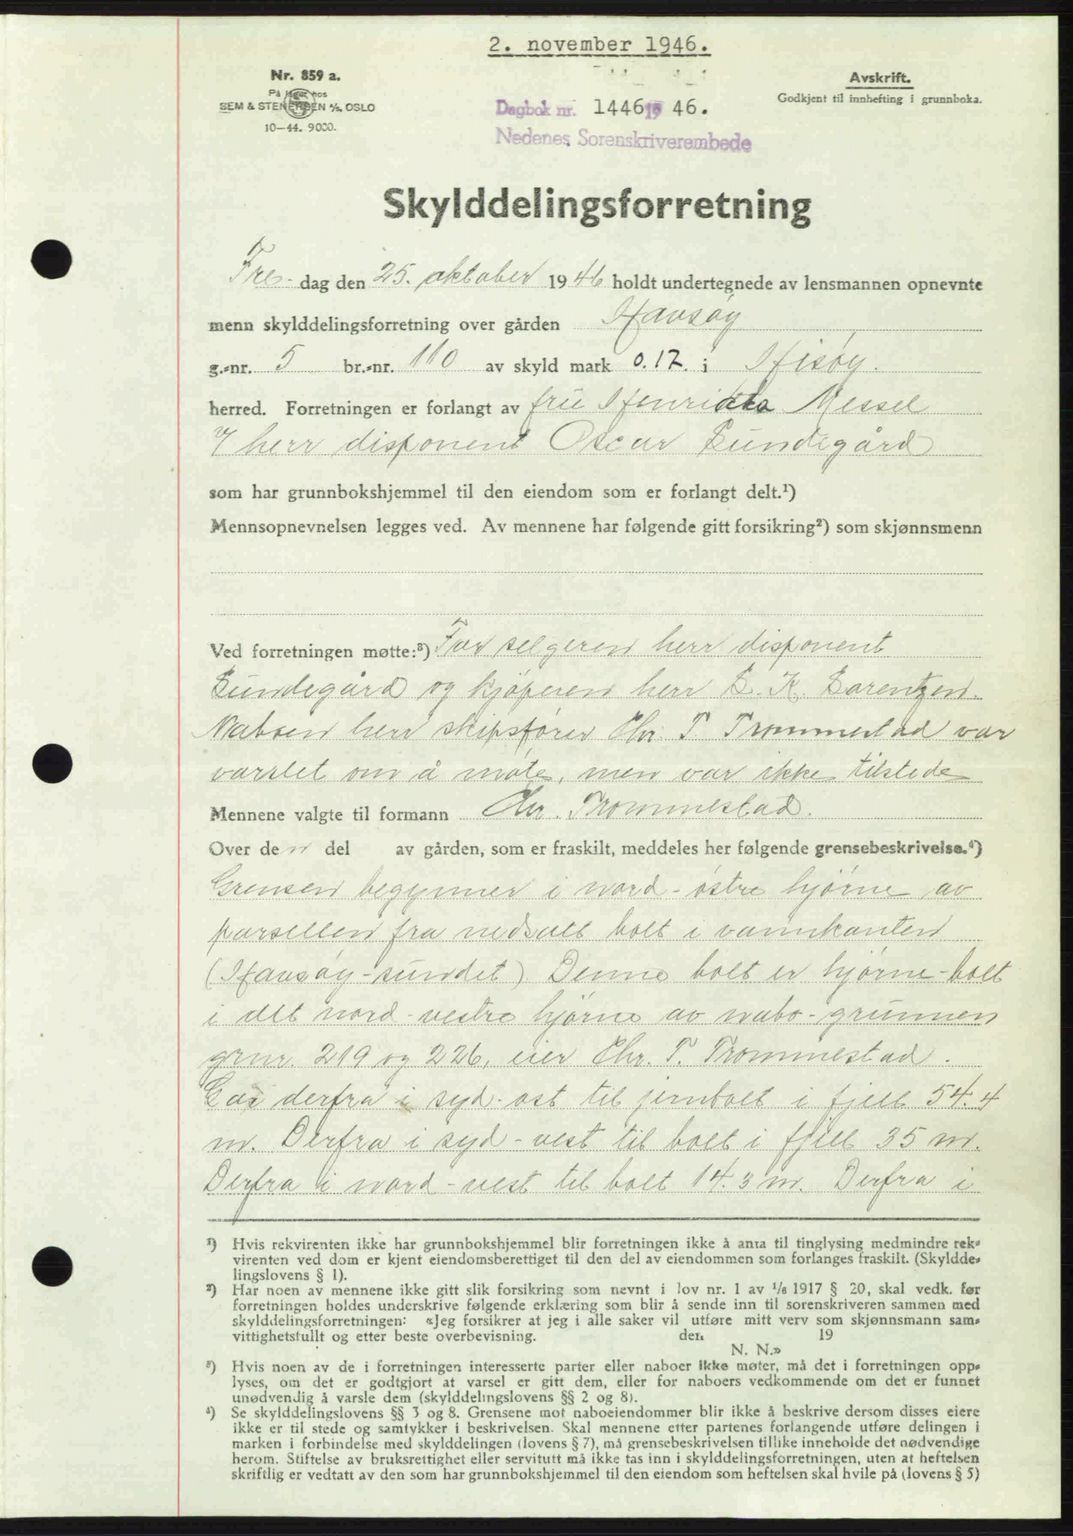 2. november 1946.
Nr. 859 a.
På lager hos
SEM & STENERSEN A/S, OSLO
10-44. 9000.
Avskrift.
Godkjent til innhefting i grunnboka.
Dagbok nr. 1446 19 46.
Nedenes Sorenskriverembede
Skylddelingsforretning
Fre- dag den 25. oktober 19 46 holdt undertegnede av lensmannen opnevnte
menn skylddelingsforretning over gården Havsøy
g.-nr. 5 br.-nr. 110 av skyld mark 0.17. i Hisøy.
herred. Forretningen er forlangt av frü Henriette Messel
v/ herr disponent Oscar Bundegård
som har grunnbokshjemmel til den eiendom som er forlangt delt.¹)
Mennsopnevnelsen legges ved. Av mennene har følgende gitt forsikring²) som skjønnsmenn
Ved forretningen møtte:³) For selgeren herr disponent
Bundegård og kjøperen herr B. K. Barentzen.
Naboen herr skipsfører Chr. T. Trommestad var
varslet om å møte, men var ikke tilstede
Mennene valgte til formann Chr. Trommestad.
Over de n del av gården, som er fraskilt, meddeles her følgende grensebeskrivelse.⁴)
Grensen begynner i nord-østre hjørne av
parsellen fra nedsatt bolt i vannkanten
(Havsøy-sundet) Denne bolt er hjørne-bolt
i det nord-vestre hjørne av nabo-grunnen
grnr. 219 og 226, eier Chr. T. Trommestad.
Går derfra i syd-ost til jernbolt i fjell 54.4
m. Derfra i syd-vest til bolt i fjell 35 m.
Derfra i nord-vest til bolt 14.3 m. Derfra i
¹) Hvis rekvirenten ikke har grunnbokshjemmel blir forretningen ikke å anta til tinglysing medmindre rek-
virenten ved dom er kjent eiendomsberettiget til den del av eiendommen som forlanges fraskilt. (Skyldde-
lingslovens § 1).
²) Har noen av mennene ikke gitt slik forsikring som nevnt i lov nr. 1 av 1/6 1917 § 20, skal vedk. før
forretningen holdes underskrive følgende erklæring som blir å sende inn til sorenskriveren sammen med
skylddelingsforretningen: «Jeg forsikrer at jeg i alle saker vil utføre mitt verv som skjønnsmann sam-
vittighetsfullt og etter beste overbevisning. den 19
N. N.»
³) Hvis noen av de i forretningen interesserte parter eller naboer ikke møter, må det i forretningen opp-
lyses, om det er godtgjort at varsel er gitt dem, eller for naboers vedkommende om det er funnet
unødvendig å varsle dem (skylddelingslovens §§ 2 og 8).
⁴) Se skylddelingslovens §§ 3 og 8. Grensene mot naboeiendommer blir ikke å beskrive dersom disses eiere
ikke er til stede og samtykker i beskrivelsen. Skal mennene etter partenes forlangende utføre delingen i
marken i forbindelse med skylddelingen (lovens § 7), må grensebeskrivelsen tillike inneholde det nødvendige
herom. Stiftelse av bruksrettighet eller servitutt må ikke tas inn i skylddelingsforretningen, uten at heftelsen
skriftlig er vedtatt av den som har grunnbokshjemmel til den eiendom som heftelsen skal hvile på (lovens § 5)